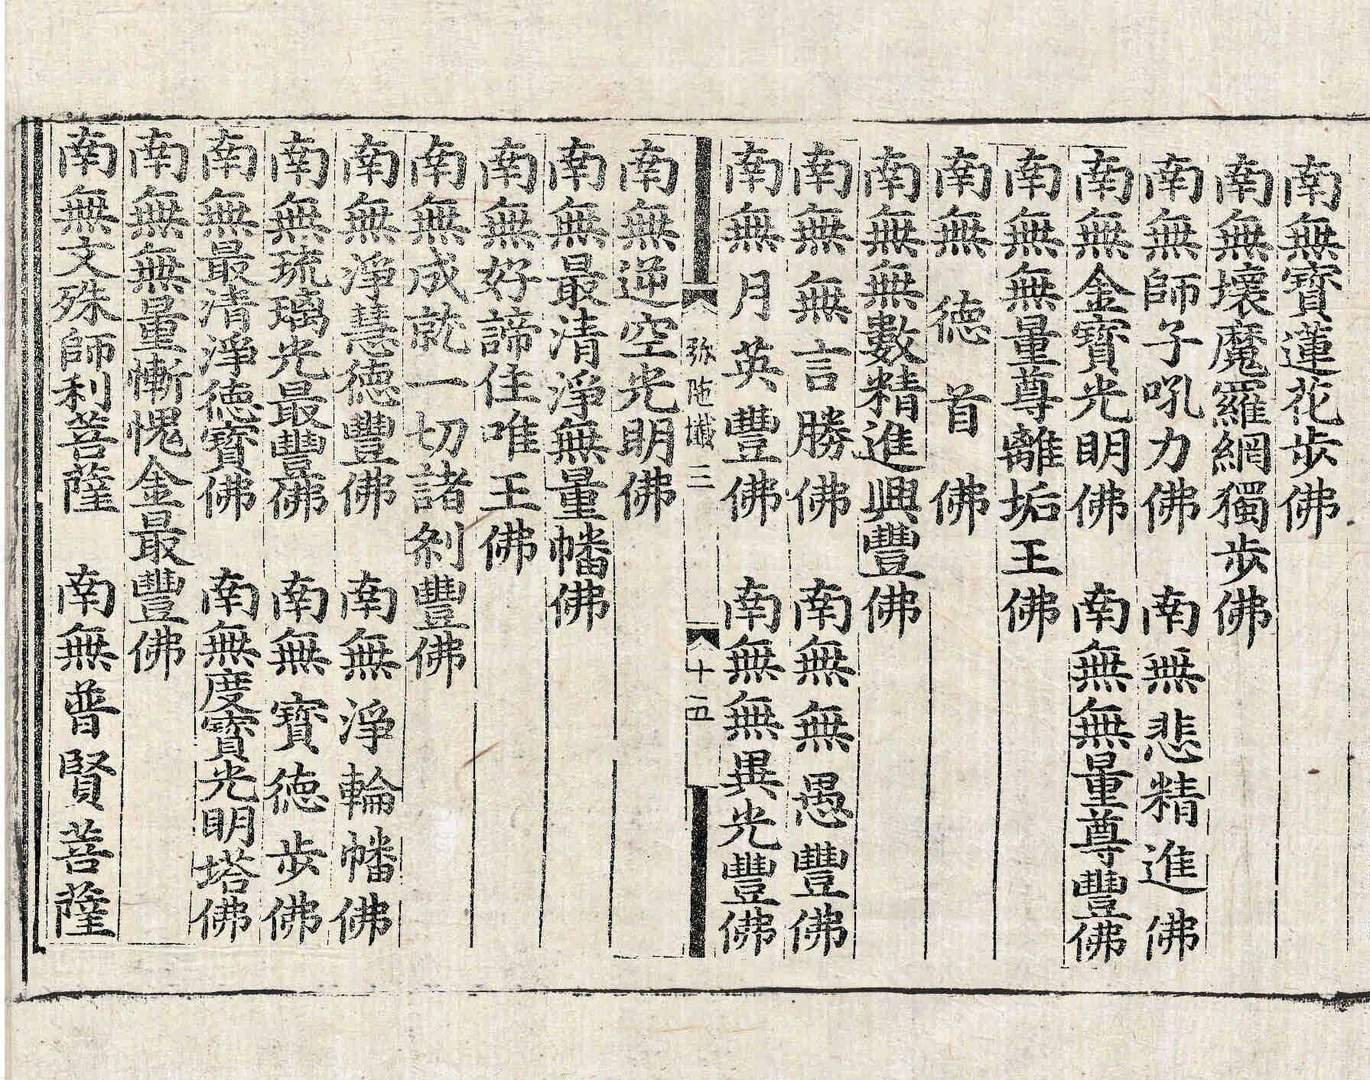 南無寶蓮花步佛
南無壞魔羅網獨步佛
南無師子吼力佛 南無悲精進佛
南無金寶光明佛 南無無量尊豐佛
南無無量尊離垢王佛
南無德首佛
南無無數精進興豐佛
南無無言勝佛 南無無愚豐佛
南無月英豐佛 南無無異光豐佛
弥陁懺三 十五
南無逆空光明佛
南無最清淨無量幡佛
南無好諦住唯王佛
南無成就一切諸剎豐佛
南無淨慧德豐佛 南無淨輪幡佛
南無琉璃光最豐佛 南無寶德步佛
南無最清淨德寶佛 南無度寶光明塔佛
南無無量慚愧金最豐佛
南無文殊師利菩薩 南無普賢菩薩